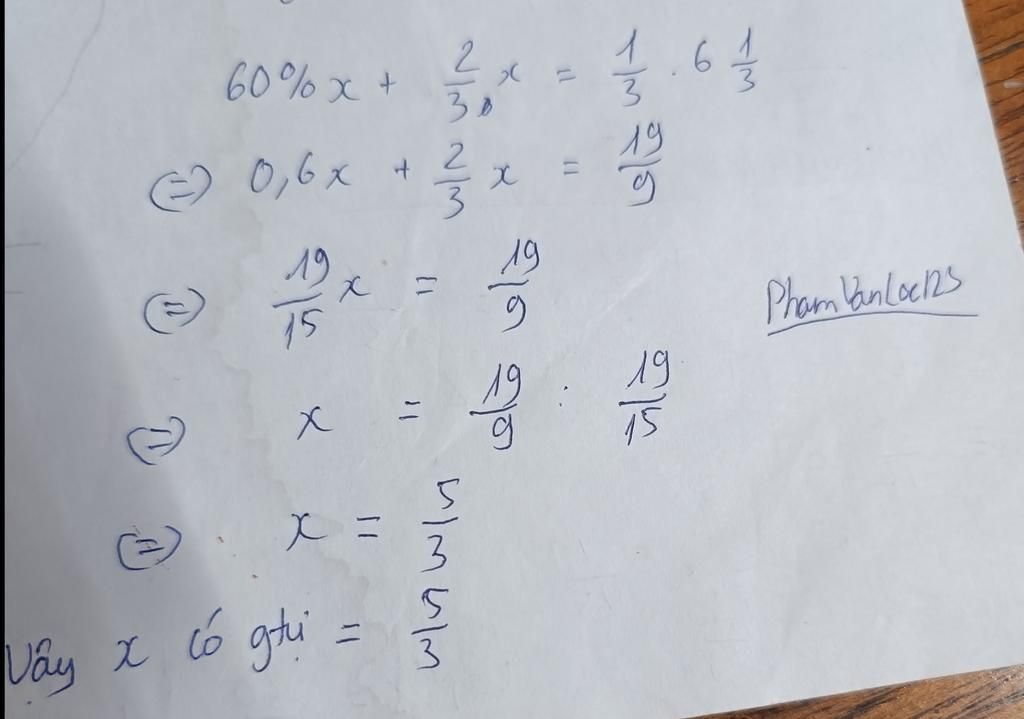 60%x + 2/3.x = 1/3 . 6 1/3
(=) 0,6x + 2/3 x = 19/9
(=) 19/15 x = 19/9
PhamVanLoc123
(=) x = 19/9 : 19/15
(=) x = 5/3
Vậy x có gtrị = 5/3